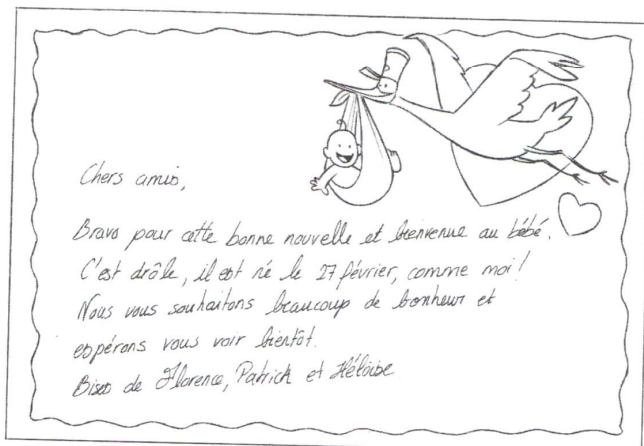 Chers amis,
Bravo pour cette bonne nouvelle et bienvenue au bébé.
C'est drôle, il est né le 27 février, comme moi !
Nous vous souhaitons beaucoup de bonheur et
espérons vous voir bientôt.
Bises de Florence, Patrick et Héloïse